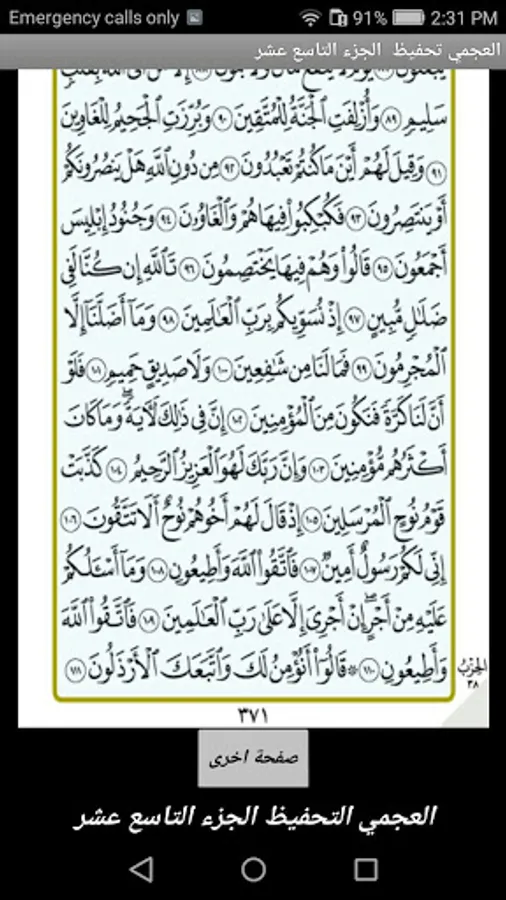 Emergency calls only 91% 2:31 PM
العجمي تحفيظ الجزء التاسع عشر
سَلِيمٍ ٨٩ وَأُزْلِفَتِ الْجَنَّةُ لِلْمُتَّقِينَ ٩٠ وَبُرِّزَتِ الْجَحِيمُ لِلْغَاوِينَ
٩١ وَقِيلَ لَهُمْ أَيْنَ مَا كُنتُمْ تَعْبُدُونَ ٩٢ مِن دُونِ اللَّهِ هَلْ يَنصُرُونَكُمْ
أَوْ يَنتَصِرُونَ ٩٣ فَكُبْكِبُوا فِيهَا هُمْ وَالْغَاوُۥنَ ٩٤ وَجُنُودُ إِبْلِيسَ
أَجْمَعُونَ ٩٥ قَالُوا وَهُمْ فِيهَا يَخْتَصِمُونَ ٩٦ تَاللَّهِ إِن كُنَّا لَفِي
ضَلَٰلٍ مُّبِينٍ ٩٧ إِذْ نُسَوِّيكُم بِرَبِّ الْعَٰلَمِينَ ٩٨ وَمَا أَضَلَّنَا إِلَّا
الْمُجْرِمُونَ ٩٩ فَمَا لَنَا مِن شَٰفِعِينَ ١٠٠ وَلَا صَدِيقٍ حَمِيمٍ ١٠١ فَلَوْ
أَنَّ لَنَا كَرَّةً فَنَكُونَ مِنَ الْمُؤْمِنِينَ ١٠٢ إِنَّ فِي ذَٰلِكَ لَآيَةً ۖ وَمَا كَانَ
أَكْثَرُهُم مُّؤْمِنِينَ ١٠٣ وَإِنَّ رَبَّكَ لَهُوَ الْعَزِيزُ الرَّحِيمُ ١٠٤ كَذَّبَتْ
قَوْمُ نُوحٍ الْمُرْسَلِينَ ١٠٥ إِذْ قَالَ لَهُمْ أَخُوهُمْ نُوحٌ أَلَا تَتَّقُونَ ١٠٦
إِنِّي لَكُمْ رَسُولٌ أَمِينٌ ١٠٧ فَاتَّقُوا اللَّهَ وَأَطِيعُونِ ١٠٨ وَمَا أَسْـَٔلُكُمْ
عَلَيْهِ مِنْ أَجْرٍ ۖ إِنْ أَجْرِيَ إِلَّا عَلَىٰ رَبِّ الْعَٰلَمِينَ ١٠٩ فَاتَّقُوا اللَّهَ
وَأَطِيعُونِ ١١٠ ۞ قَالُوا أَنُؤْمِنُ لَكَ وَاتَّبَعَكَ الْأَرْذَلُونَ ١١١
الحزب
٣٨
٣٧١
صفحة اخرى
العجمي التحفيظ الجزء التاسع عشر